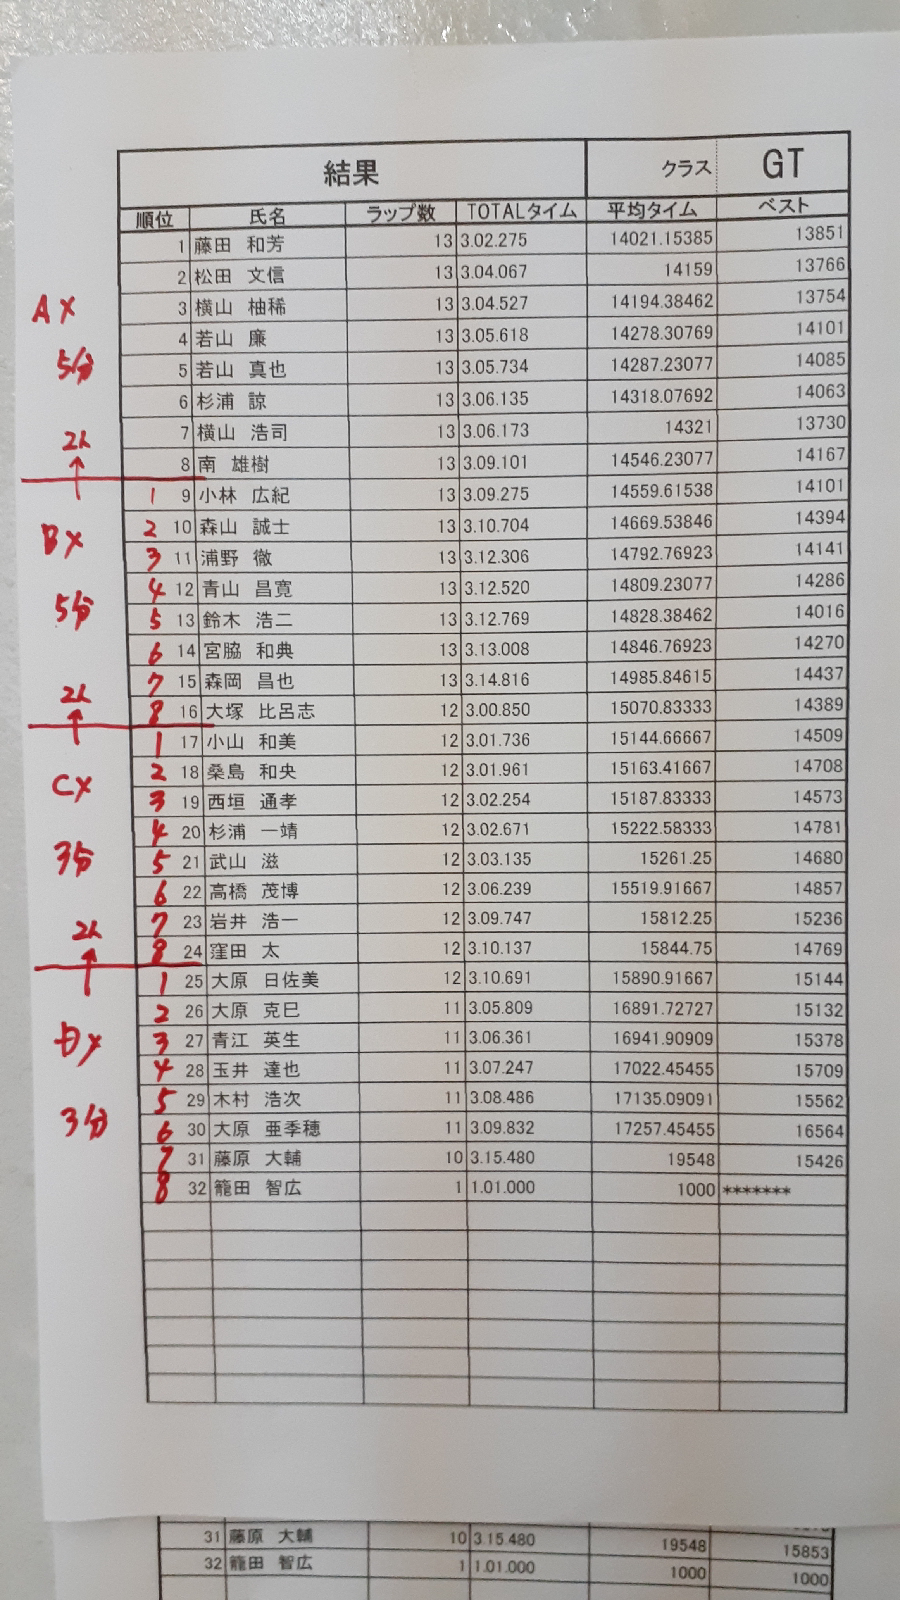 結果 クラス GT
順位 氏名 ラップ数 TOTALタイム 平均タイム ベスト
1 藤田 和芳 13 3.02.275 14021.15385 13851
2 松田 文信 13 3.04.067 14159 13766
Aメ 3 横山 柚稀 13 3.04.527 14194.38462 13754
4 若山 廉 13 3.05.618 14278.30769 14101
5分 5 若山 真也 13 3.05.734 14287.23077 14085
6 杉浦 諒 13 3.06.135 14318.07692 14063
2人 7 横山 浩司 13 3.06.173 14321 13730
↑ 8 南 雄樹 13 3.09.101 14546.23077 14167
1 9 小林 広紀 13 3.09.275 14559.61538 14101
Bメ 2 10 森山 誠士 13 3.10.704 14669.53846 14394
3 11 浦野 徹 13 3.12.306 14792.76923 14141
4 12 青山 昌寛 13 3.12.520 14809.23077 14286
5分 5 13 鈴木 浩二 13 3.12.769 14828.38462 14016
6 14 宮脇 和典 13 3.13.008 14846.76923 14270
2人 7 15 森岡 昌也 13 3.14.816 14985.84615 14437
↑ 8 16 大塚 比呂志 12 3.00.850 15070.83333 14389
1 17 小山 和美 12 3.01.736 15144.66667 14509
Cメ 2 18 桑島 和央 12 3.01.961 15163.41667 14708
3 19 西垣 通孝 12 3.02.254 15187.83333 14573
4 20 杉浦 一靖 12 3.02.671 15222.58333 14781
3分 5 21 武山 滋 12 3.03.135 15261.25 14680
6 22 高橋 茂博 12 3.06.239 15519.91667 14857
2人 7 23 岩井 浩一 12 3.09.747 15812.25 15236
↑ 8 24 窪田 太 12 3.10.137 15844.75 14769
1 25 大原 日佐美 12 3.10.691 15890.91667 15144
2 26 大原 克巳 11 3.05.809 16891.72727 15132
Dメ 3 27 青江 英生 11 3.06.361 16941.90909 15378
4 28 玉井 達也 11 3.07.247 17022.45455 15709
5 29 木村 浩次 11 3.08.486 17135.09091 15562
3分 6 30 大原 亜季穂 11 3.09.832 17257.45455 16564
7 31 藤原 大輔 10 3.15.480 19548 15426
8 32 籠田 智広 1 1.01.000 1000 *******
31 藤原 大輔 10 3.15.480 19548 15853
32 籠田 智広 1 1.01.000 1000 1000